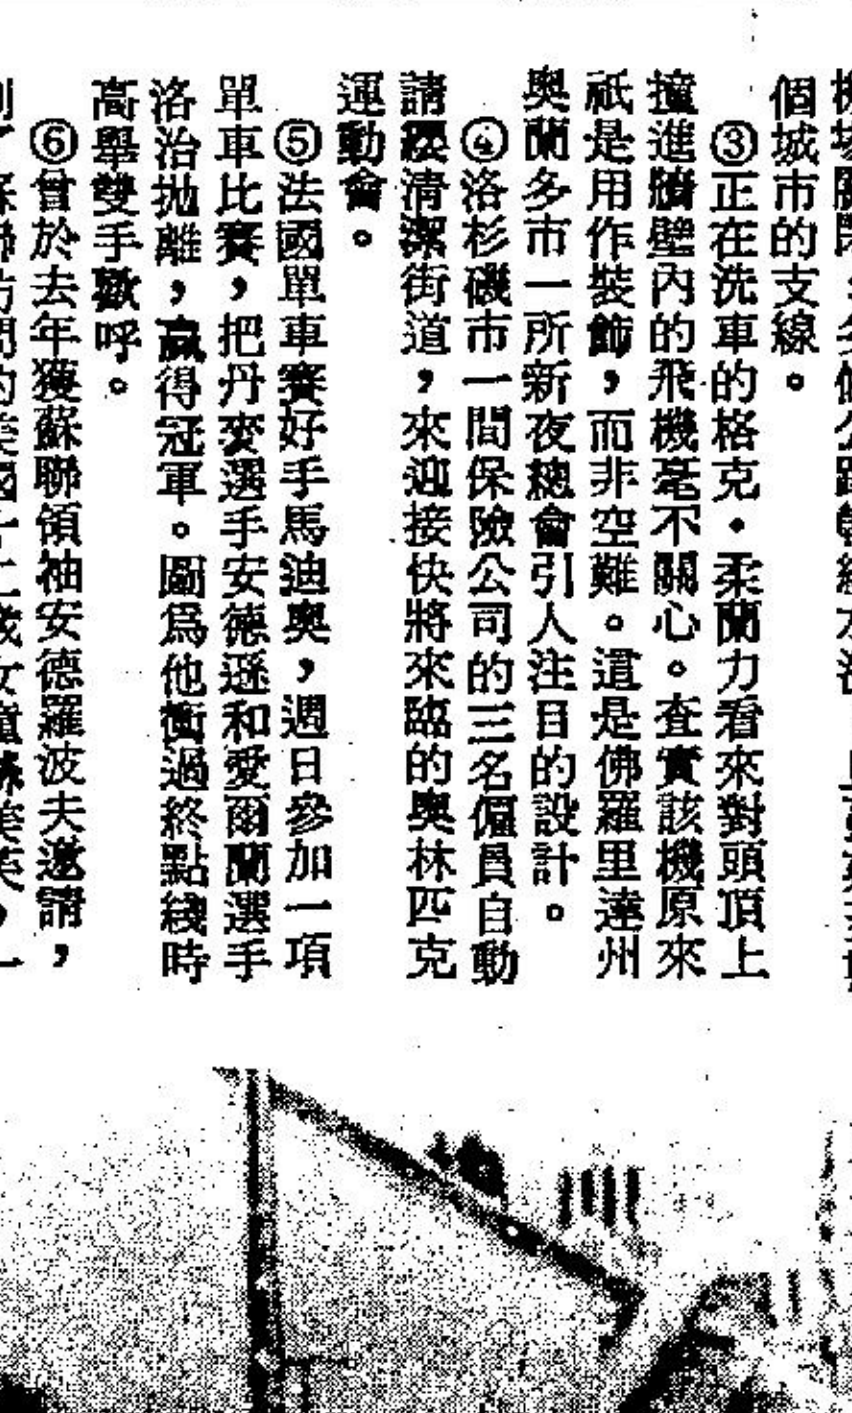 個城市的支線。
③正在洗車的格克·柔蘭力看來對頭頂上
撞進牆壁內的飛機毫不關心。查實該機原來
祇是用作裝飾，而非空難。這是佛羅里達州
奧蘭多市一所新夜總會引人注目的設計。
④洛杉磯市一間保險公司的三名僱員自動
請纓清潔街道，來迎接快將來臨的奧林匹克
運動會。
⑤法國單車賽好手馬迪奧，週日參加一項
單車比賽，把丹麥選手安德遜和愛爾蘭選手
洛治拋離，贏得冠軍。圖爲他衝過終點綫時
高舉雙手歡呼。
⑥曾於去年獲蘇聯領袖安德羅波夫邀請，